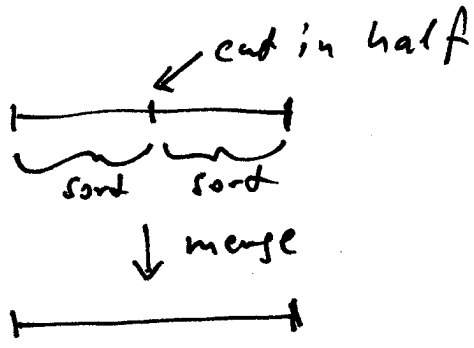 cut in half
sort sort
merge